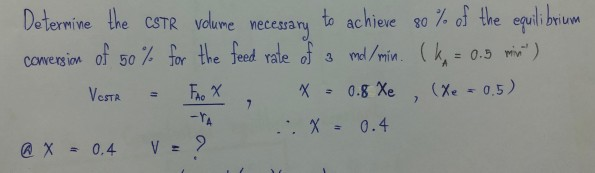 Determine the CSTR volume necessary to achieve 80 % of the equilibrium
conversion of 50 % for the feed rate of 3 mol/min. ( k_A = 0.5 min⁻¹ )
V_CSTR = F_A0 X / -r_A , X = 0.8 Xe , (Xe = 0.5)
∴ X = 0.4
@ X = 0.4 V = ?